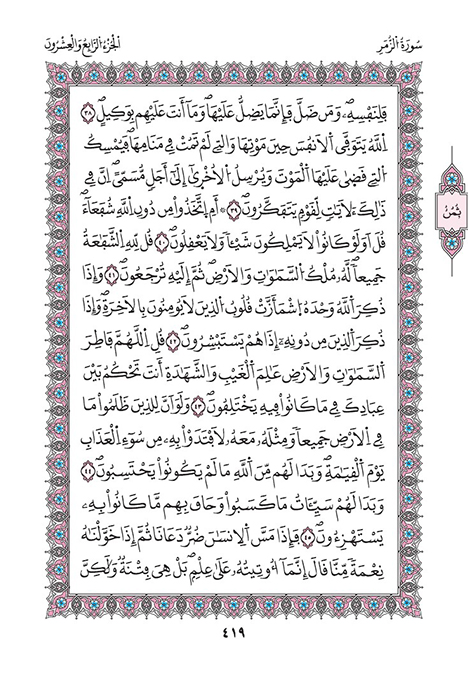 سُورَةُ الزُّمَرِ
الجُزْءُ الرَّابِعُ وَالْعِشْرُونَ
فَلِنَفْسِهِۦ وَمَن ضَلَّ فَإِنَّمَا يَضِلُّ عَلَيْهَا وَمَآ أَنتَ عَلَيْهِم بِوَكِيلٍ ٣٨
اَللَّهُ يَتَوَفَّى اَلْأَنفُسَ حِينَ مَوْتِهَا وَالتِے لَمْ تَمُتْ فِے مَنَامِهَا فَيُمْسِكُ
اُلتِے قَضَىٰ عَلَيْهَا اَلْمَوْتَ وَيُرْسِلُ اُلْأُخْرَىٰٓ إِلَىٰٓ أَجَلٖ مُّسَمّىًۖ اِنَّ فِے
ذَٰلِكَ لَأٓيَٰتٖ لِّقَوْمٖ يَتَفَكَّرُونَ ٣٩ أَمِ اِتَّخَذُواْ مِن دُونِ اِللَّهِ شُفَعَآءَ
قُلَ اَوَلَوْ كَانُواْ لَا يَمْلِكُونَ شَيْـٔاٗ وَلَا يَعْقِلُونَ ٤٠ قُل لِّلهِ اِلشَّفَٰعَةُ
جَمِيعاٗ لَّهُۥ مُلْكُ اُلسَّمَٰوَٰتِ وَالْأَرْضِ ثُمَّ إِلَيْهِ تُرْجَعُونَ ٤١ وَإِذَا
ذُكِرَ اَللَّهُ وَحْدَهُ اُشْمَأَزَّتْ قُلُوبُ اُلذِينَ لَا يُومِنُونَ بِالْأَخِرَةِ وَإِذَا
ذُكِرَ اَلذِينَ مِن دُونِهِۦٓ إِذَا هُمْ يَسْتَبْشِرُونَ ٤٢ قُلِ اِللَّهُمَّ فَاطِرَ
اَلسَّمَٰوَٰتِ وَالْأَرْضِ عَٰلِمَ اَلْغَيْبِ وَالشَّهَٰدَةِ أَنتَ تَحْكُمُ بَيْنَ
عِبَادِكَ فِے مَا كَانُواْ فِيهِ يَخْتَلِفُونَ ٤٣ وَلَوَ اَنَّ لِلذِينَ ظَلَمُواْ مَا
فِے اِلْأَرْضِ جَمِيعاٗ وَمِثْلَهُۥ مَعَهُۥ لَافْتَدَوْاْ بِهِۦ مِن سُوٓءِ اِلْعَذَابِ
يَوْمَ اَلْقِيَٰمَةِ وَبَدَا لَهُم مِّنَ اَللَّهِ مَا لَمْ يَكُونُواْ يَحْتَسِبُونَ ٤٤
وَبَدَا لَهُمْ سَيِّـَٔاتُ مَا كَسَبُواْ وَحَاقَ بِهِم مَّا كَانُواْ بِهِۦ
يَسْتَهْزِءُونَ ٤٥ فَإِذَا مَسَّ اَلِانسَٰنَ ضُرّٞ دَعَانَا ثُمَّ إِذَا خَوَّلْنَٰهُ
نِعْمَةٗ مِّنَّا قَالَ إِنَّمَآ أُوتِيتُهُۥ عَلَىٰ عِلْمِۢ بَلْ هِيَ فِتْنَةٞ وَلَٰكِنَّ
ثُمُنٌ
٤١٩